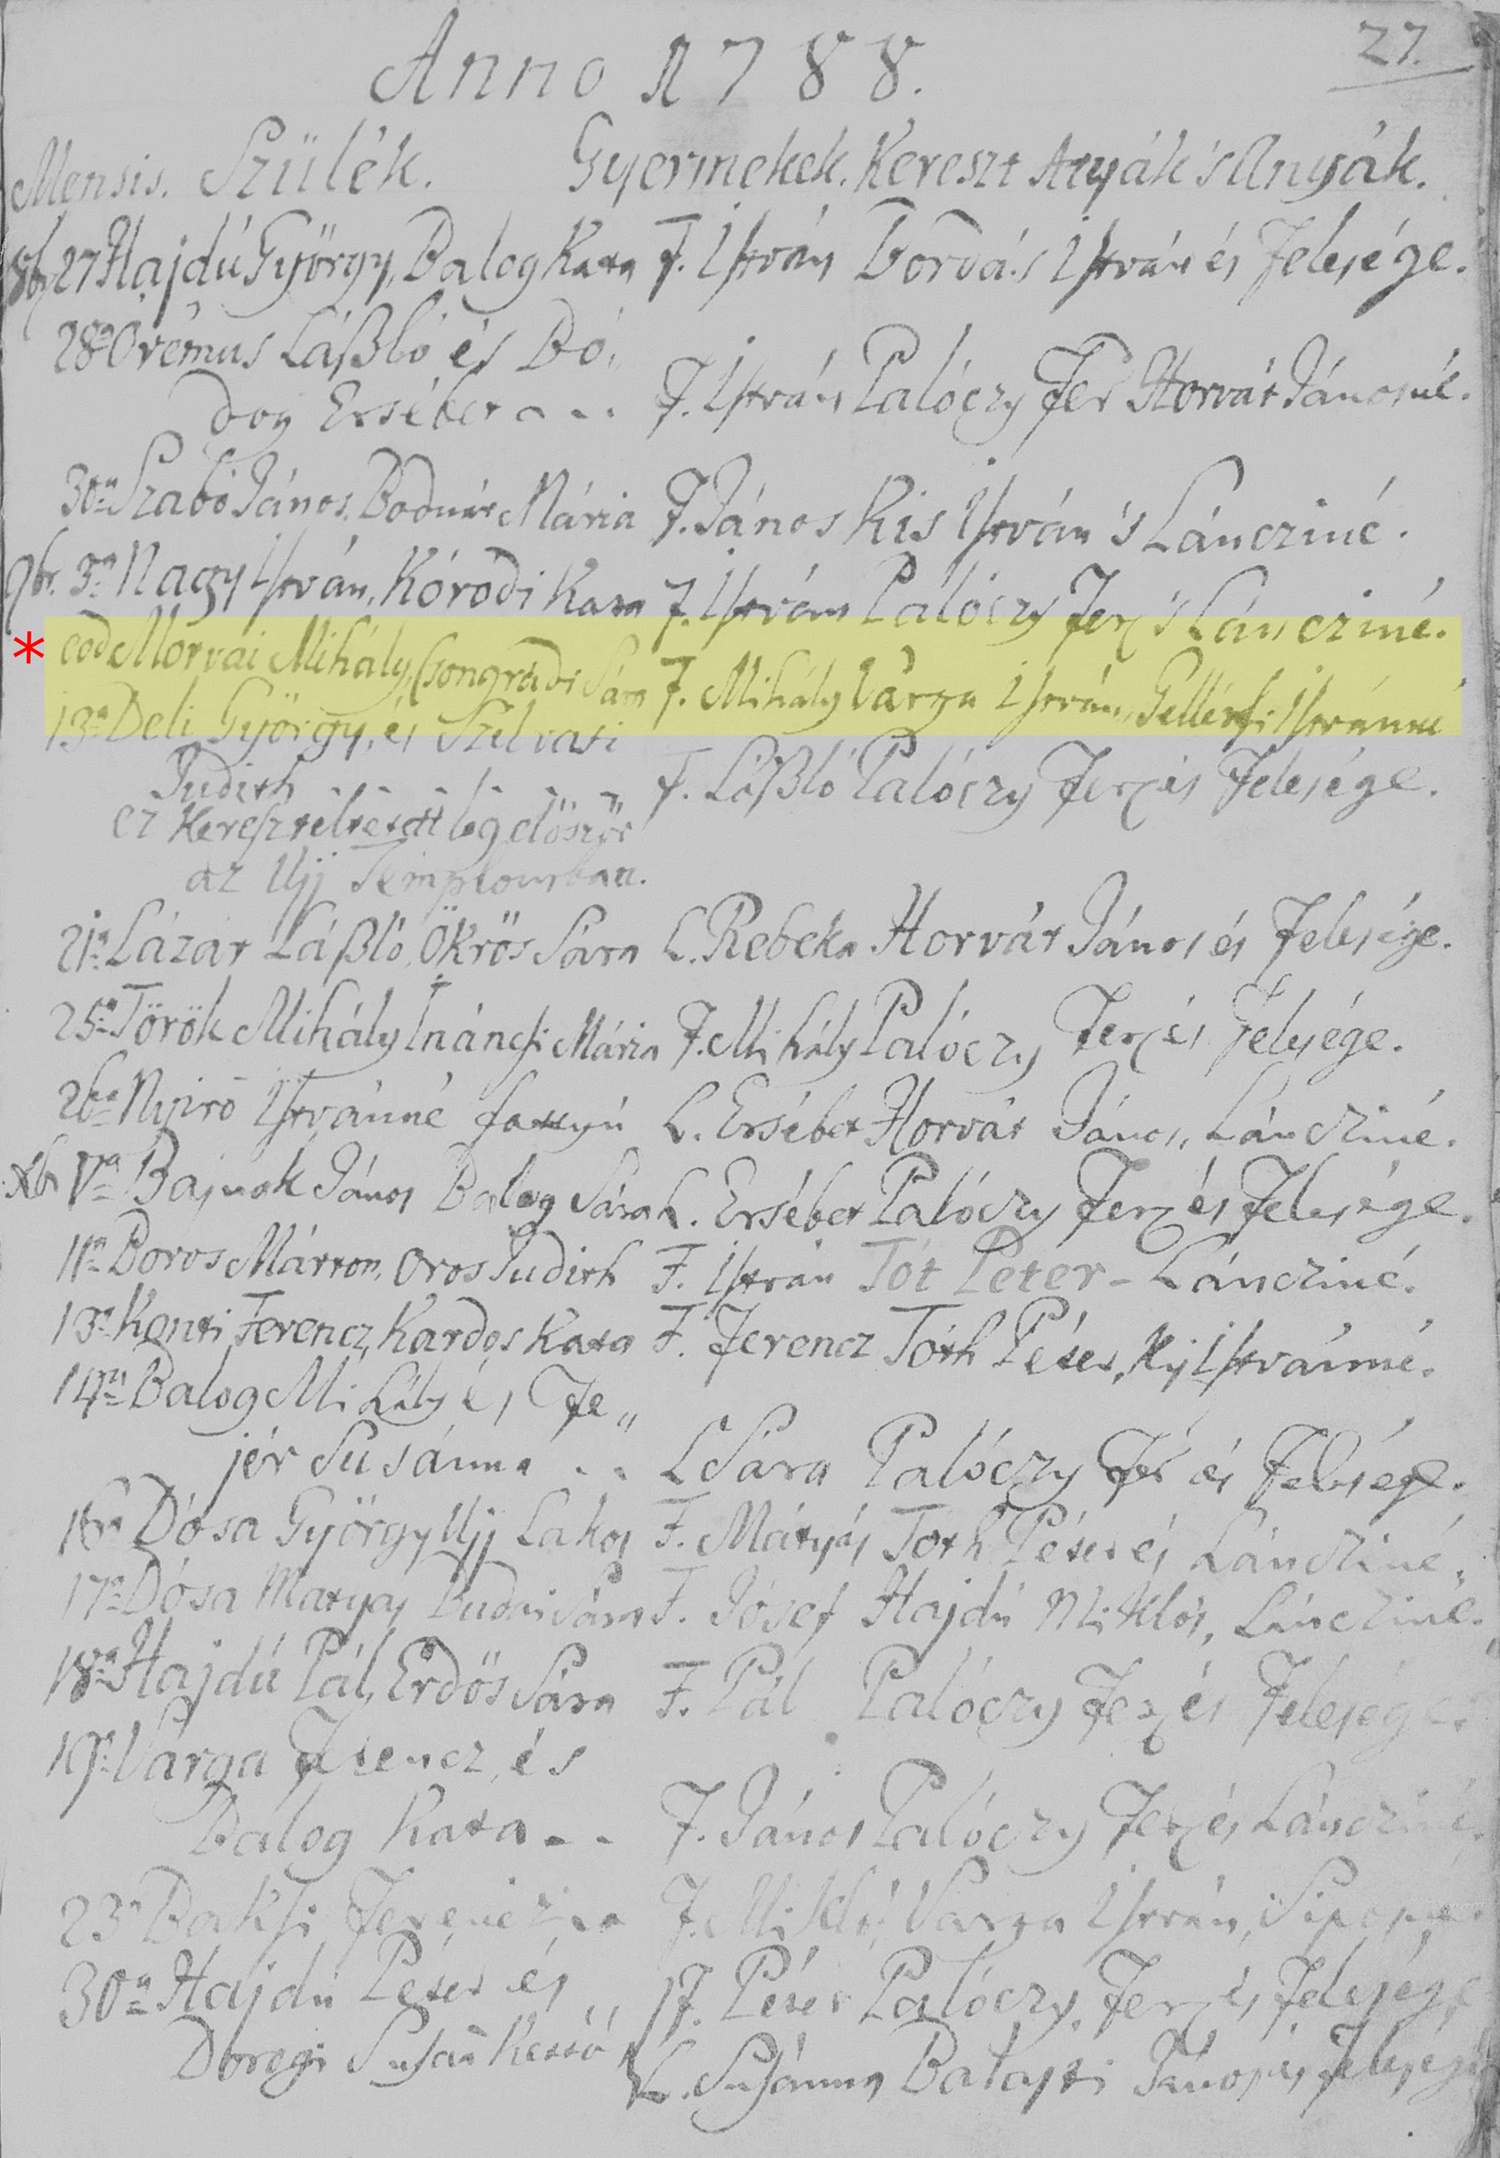 27.
Anno 1788.
Mensis. Szülék. Gyermekek. Kereszt Atyák 's Anyák.
8br 27 Hajdú György, Balog Kata F. István Bordás István és Felesége.
28a Orémus Láßló és Bó„
dog Ersébet - - - F. István Palóczy Fer Horvát Jánosné.
30a Szabó János, Bodnár Mária F. János Kis István 's Láncziné.
9br. 3a Nagy István, Kóródi Kata F. István Palóczy Fer 's Láncziné.
* eod Morvai Mihály, Csongrádi Sára F. Mihály Varga István, Gellérfi Istvánné
13a Deli György, és Szilvási
Judith - - - - - F. Láßló Palóczy Fer és Felesége.
ez Kereszteltetett leg először
az Ujj Templomban.
21a Lázár Láßló, Ökrös Sára L. Rebeka Horvát János és Felesége.
25a Török Mihály Inánchi Mária F. Mihály Palóczy Fer és Felesége.
26a Nyirő Istvánné fattyú L. Ersébet Horvát János, Láncziné.
Xbr Va Bajnok János Balog Sára L. Ersébet Palóczy Fer és Felesége.
11a Boros Márton, Oros Judith F. István Tót Péter - Láncziné.
13a Kenti Ferencz, Kardos Kata F. Ferencz Tóth Péter, Istvánné.
14a Balog Mihály és Fe„
jér Susánna - - L Sára Palóczy Fer és Felesége.
16a Dósa György Ujj Lakos F. Mátyás Tóth Péter és Láncziné.
17a Dósa Matyas Budai Sára F. Jósef Hajdú Miklós, Láncziné.
18a Hajdú Pál, Erdős Sára F. Pál Palóczy Fer és Felesége.
19a Varga Ferencz, és
Balog Kata - - F. János Palóczy Fer és Láncziné.
23a Baksi Ferencz - - F. Mikló Varga István,
30a Hajdu Péter és F. Péter Palóczy Fer és Felesége
Doregi Susan Kettő L. Susánna Balásti János és Felesége